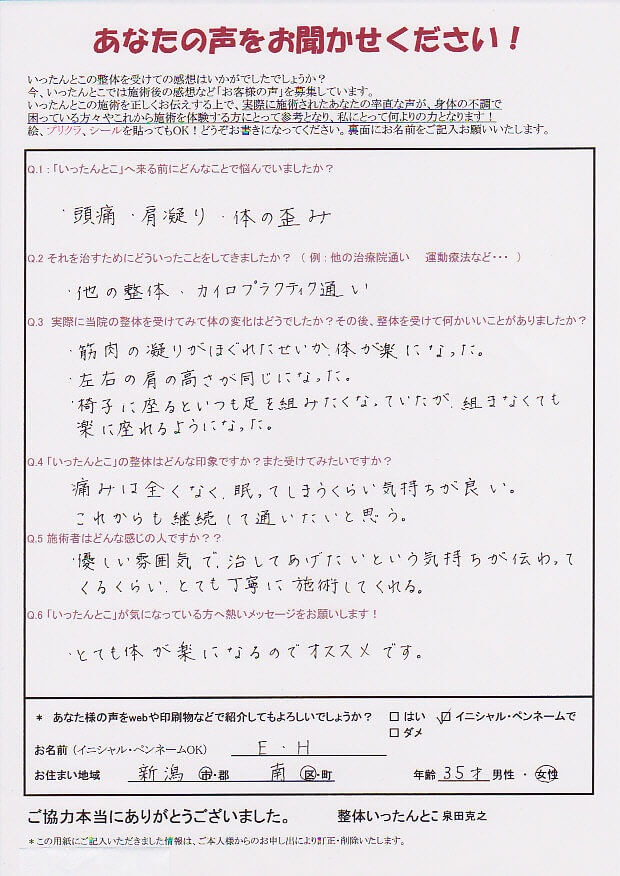 あなたの声をお聞かせください！
いったんとこの整体を受けての感想はいかがでしたでしょうか？
今、いったんとこでは施術後の感想など「お客様の声」を募集しています。
いったんとこの施術を正しくお伝えする上で、実際に施術されたあなたの率直な声が、身体の不調で
困っている方々やこれから施術を体験する方にとって参考となり、私にとって何よりの力となります！
絵、プリクラ、シールを貼ってもOK！どうぞお書きになってください。裏面にお名前をご記入お願いいたします。
Q.1：「いったんとこ」へ来る前にどんなことで悩んでいましたか？
・頭痛・肩凝り・体の歪み
Q.2 それを治すためにどういったことをしてきましたか？（例：他の治療院通い　運動療法など・・・）
・他の整体、カイロプラクティク通い
Q.3 実際に当院の整体を受けてみて体の変化はどうでしたか？その後、整体を受けて何かいいことがありましたか？
・筋肉の凝りがほぐれたせいか、体が楽になった。
・左右の肩の高さが同じになった。
・椅子に座るといつも足を組みたくなっていたが、組まなくても
楽に座れるようになった。
Q.4 「いったんとこ」の整体はどんな印象ですか？また受けてみたいですか？
痛みは全くなく、眠ってしまうくらい気持ちが良い。
これからも継続して通いたいと思う。
Q.5 施術者はどんな感じの人ですか？？
・優しい雰囲気で、治してあげたいという気持ちが伝わって
くるくらい、とても丁寧に施術してくれる。
Q.6 「いったんとこ」が気になっている方へ熱いメッセージをお願いします！
・とても体が楽になるのでオススメです。
＊ あなた様の声をwebや印刷物などで紹介してもよろしいでしょうか？　□ はい　☑ イニシャル・ペンネームで
□ ダメ
お名前（イニシャル・ペンネームOK）　E・H
お住まい地域　新潟 市・郡　南 区・町　年齢 35才 男性・女性
ご協力本当にありがとうございました。　整体いったんとこ 泉田克之
＊この用紙にご記入いただきました情報は、ご本人様からのお申し出により訂正・削除いたします。